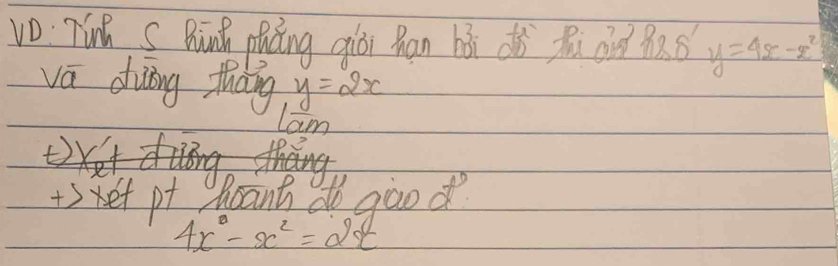 VD: Tính S hình phẳng giới hạn bởi đồ thị của hsố y = 4x - x²
và đường thẳng y = 2x
làm
+) xét đường thẳng
+> xét pt hoành độ giao đ
4x - x² = 2x